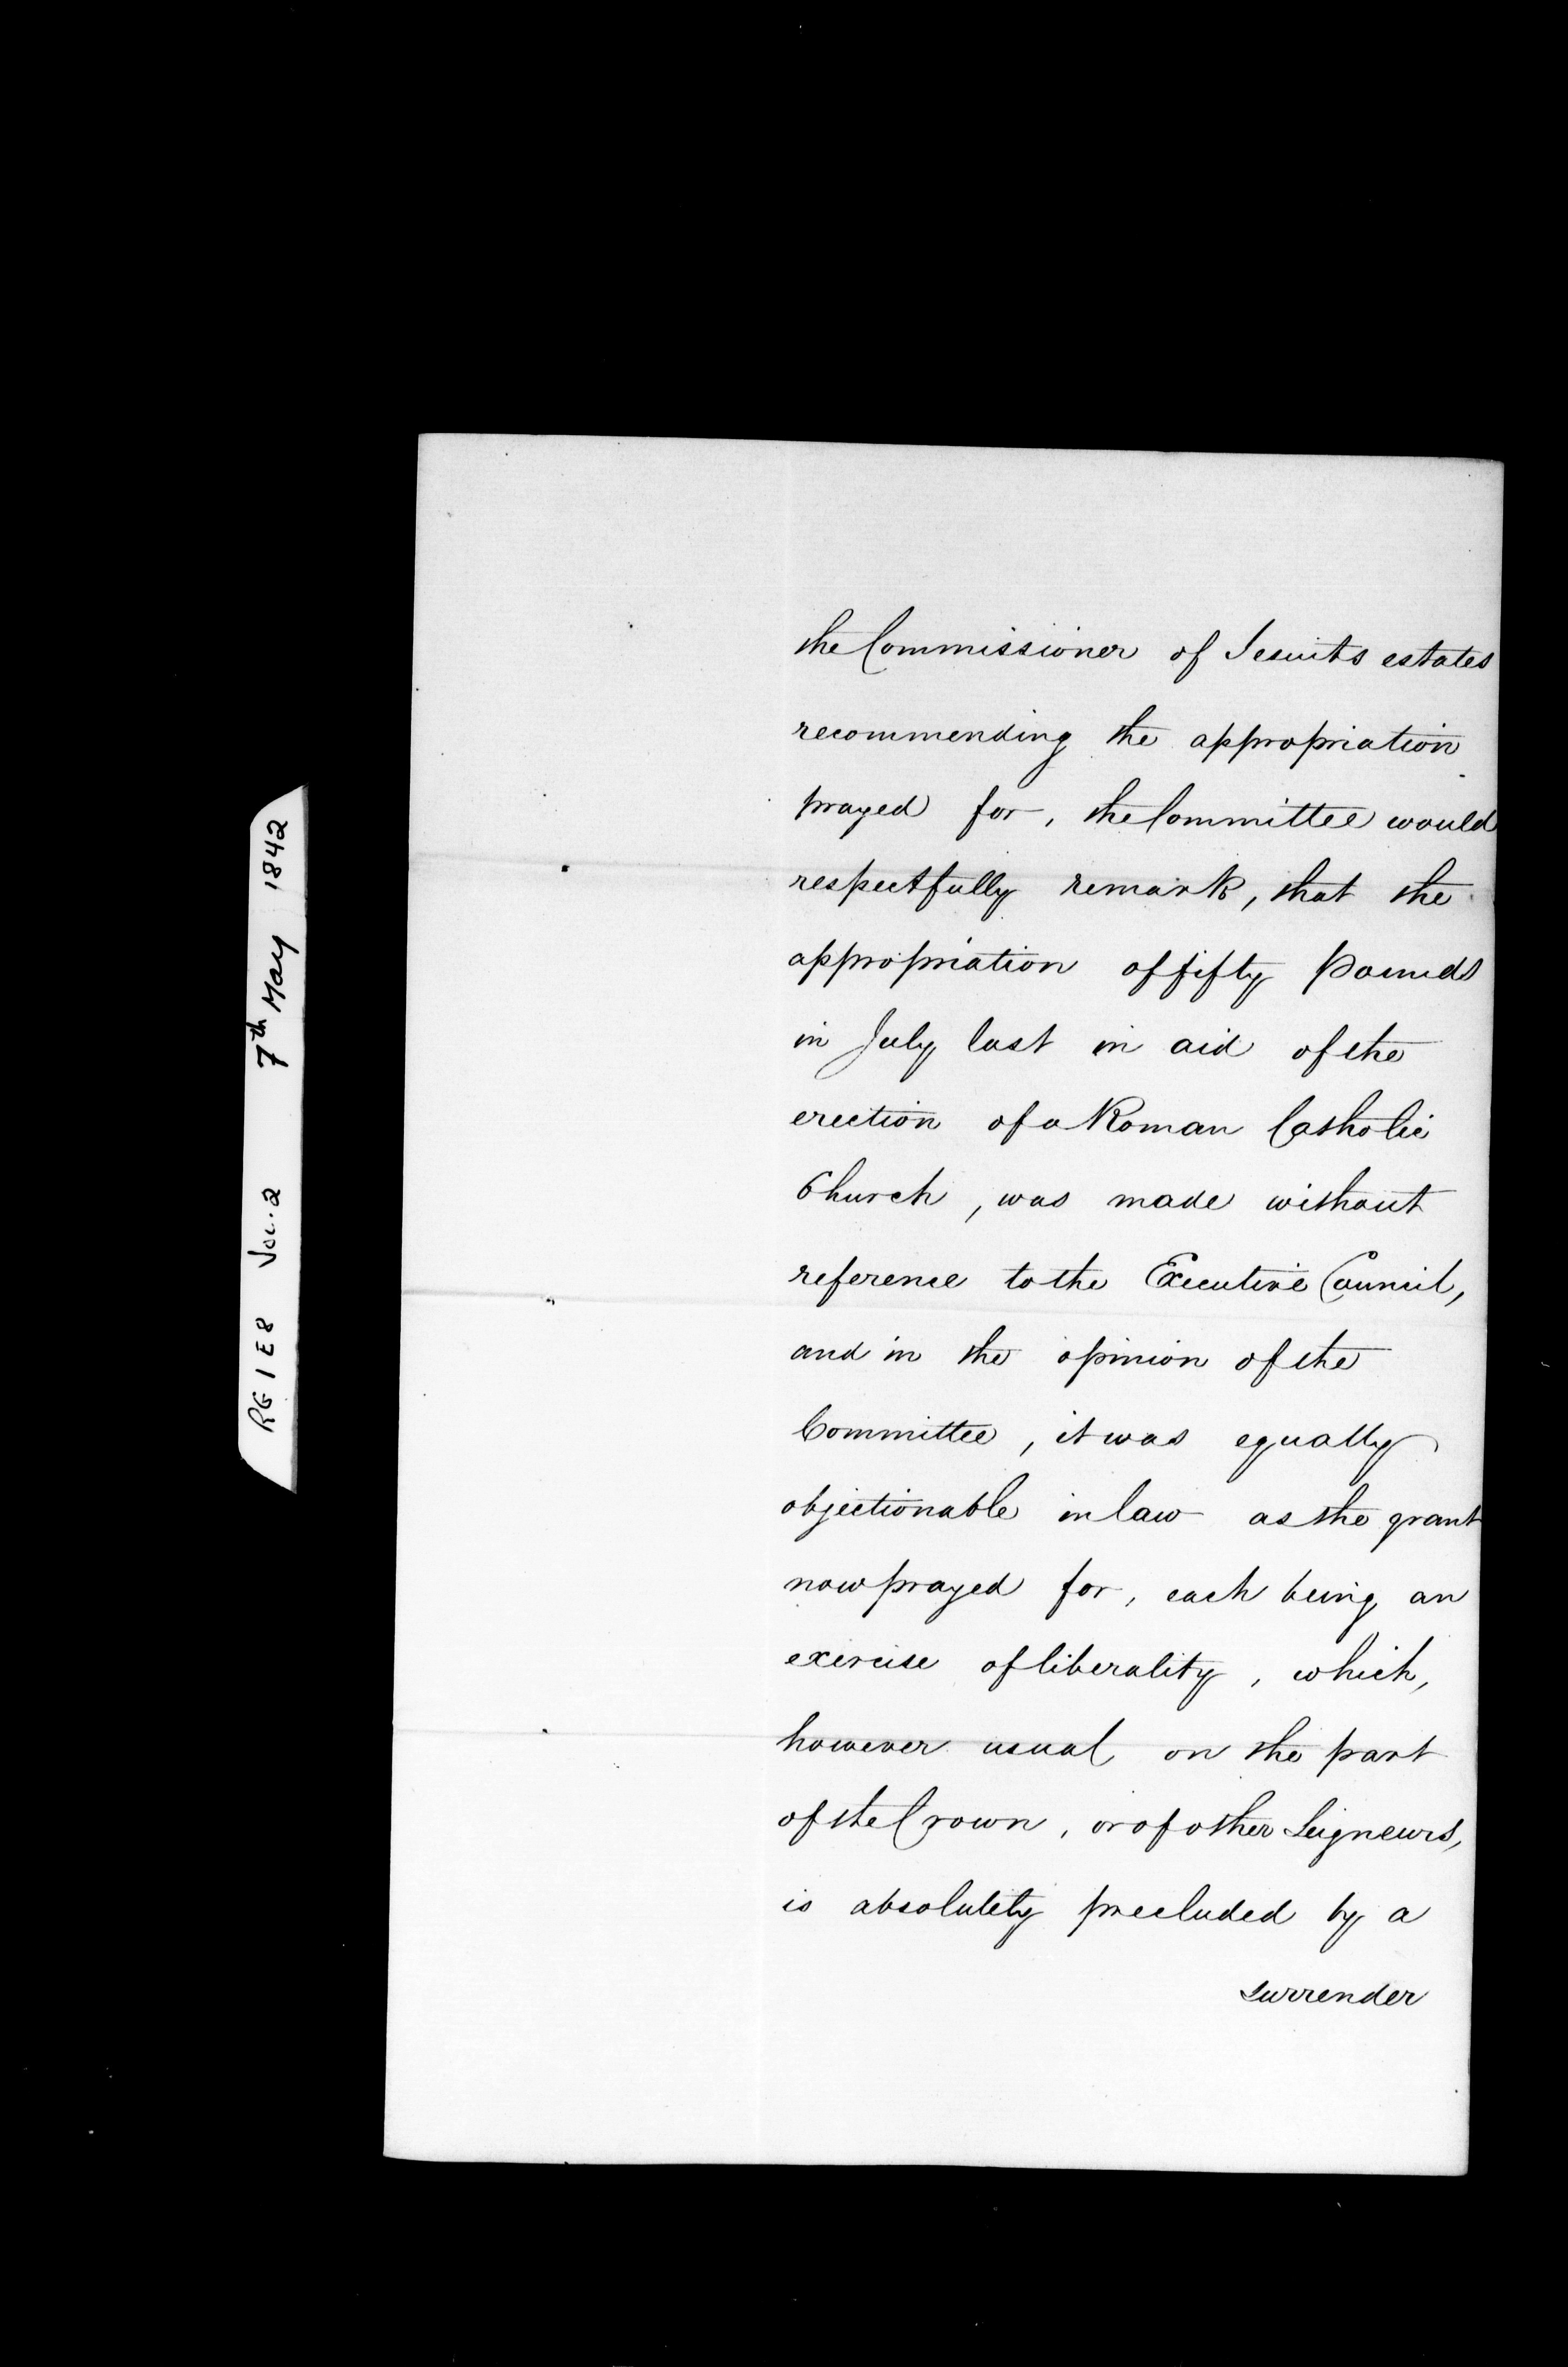 RG 1 E8 Vol. 2 7th May 1842
the Commissioner of Jesuits estates
recommending the appropriation
prayed for, the Committee would
respectfully remark, that the
appropriation of fifty Pounds
in July last in aid of the
erection of a Roman Catholic
Church, was made without
reference to the Executive Council,
and in the opinion of the
Committee, it was equally
objectionable in law as the grant
now prayed for, each being an
exercise of liberality, which,
however usual on the part
of the Crown, or of other Seigneurs,
is absolutely precluded by a
surrender